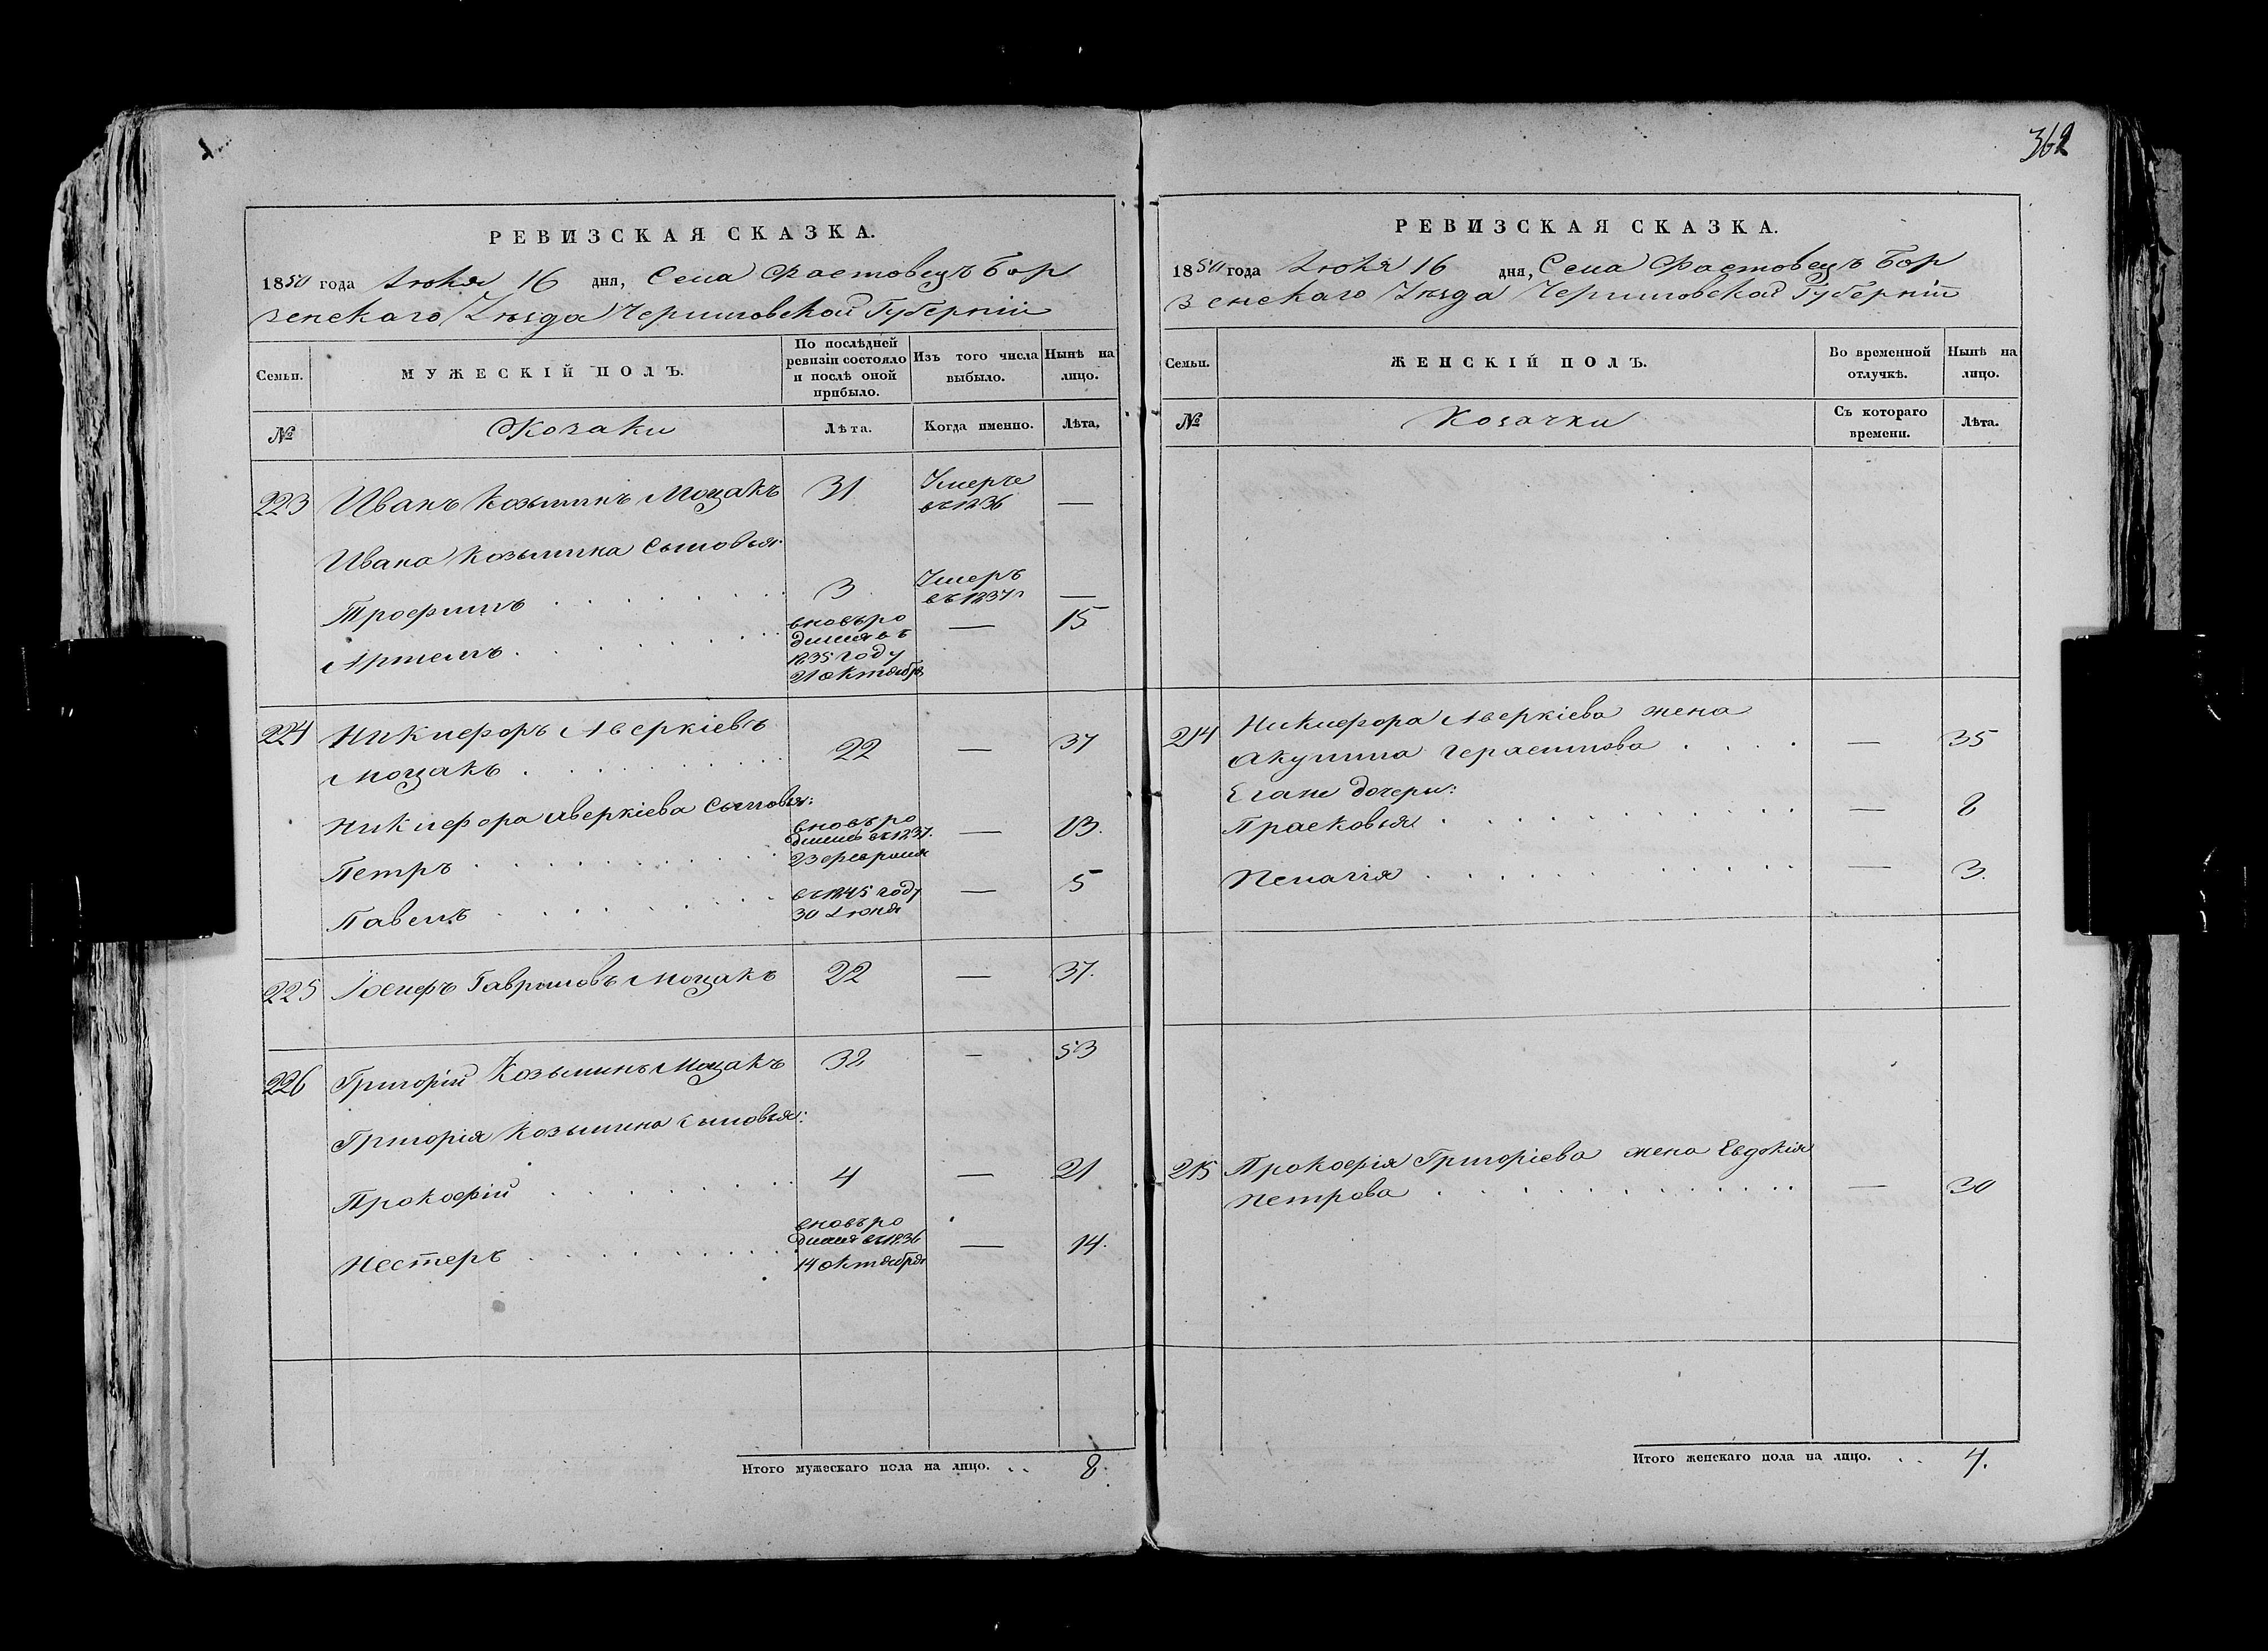 РЕВИЗСКАЯ СКАЗКА.
1850 года Июня 16 дня, Села Фастовецъ Бор
зенскаго Уѣзда Черниговской Губерніи
Семьи.
МУЖЕСКІЙ ПОЛЪ.
По послѣдней
ревизіи состояло
и послѣ оной
прибыло.
Изъ того числа
выбыло.
Нынѣ на
лицо.
№
Козаки
Лѣта.
Когда именно.
Лѣта.
223 Иванъ Козьминъ Моцакъ 31 Умерче —
въ 1836
Ивана Козьмина сыновья:
Трофимъ 3 Умеръ —
въ 1837
Артемъ вновь ро — 15
дился въ
1835 году
21 октября
224 Никифоръ Аверкіевъ
Моцакъ 22 — 37
Никифора Аверкіева Сыновья:
Петръ вновь ро — 13.
дился въ 1837.
23 февраля
Павелъ въ 1845 году — 5
30 Июня
225 Іосифъ Гавриловъ Моцакъ 22 — 37.
226 Григорій Козьминъ Моцакъ 32 — 53
Григорія Козьмина сыновья:
Прокофій 4 — 21
Нестеръ вновь ро — 14.
дился въ 1836
14 октября
Итого мужескаго пола на лицо. . . 8.
362
РЕВИЗСКАЯ СКАЗКА.
1850 года Июня 16 дня, Села Фастовецъ Бор
зенскаго Уѣзда Черниговской Губерніи
Семьи.
ЖЕНСКІЙ ПОЛЪ.
Во временной
отлучкѣ.
Нынѣ на
лицо.
№
Козачки
Съ котораго
времени.
Лѣта.
214 Никифора Аверкіева жена
Акулина Герасимова — 35
Егоже дочери:
Прасковья — 8
Пелагія — 3.
215 Прокофія Григоріева жена Евдокія
Петрова — 30
Итого женскаго пола на лицо. . . 4.